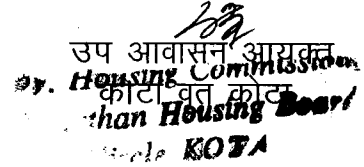 उप आवासन आयुक्त
Dy. Housing Commissioner
कोटा वृत कोटा
than Housing Board
Circle KOTA